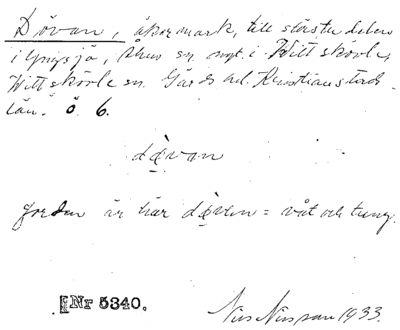 Dövan, åkermark, till största delen
i Yngsjö, Åhus sn. mgt. i Wittskövle,
Wittskövle sn. Gärds hd. Kristianstads
län. ö 6.
dø̀van
Jorden är här døven = våt och tung.
Nr 5340.
Nils Nilsson 1933.